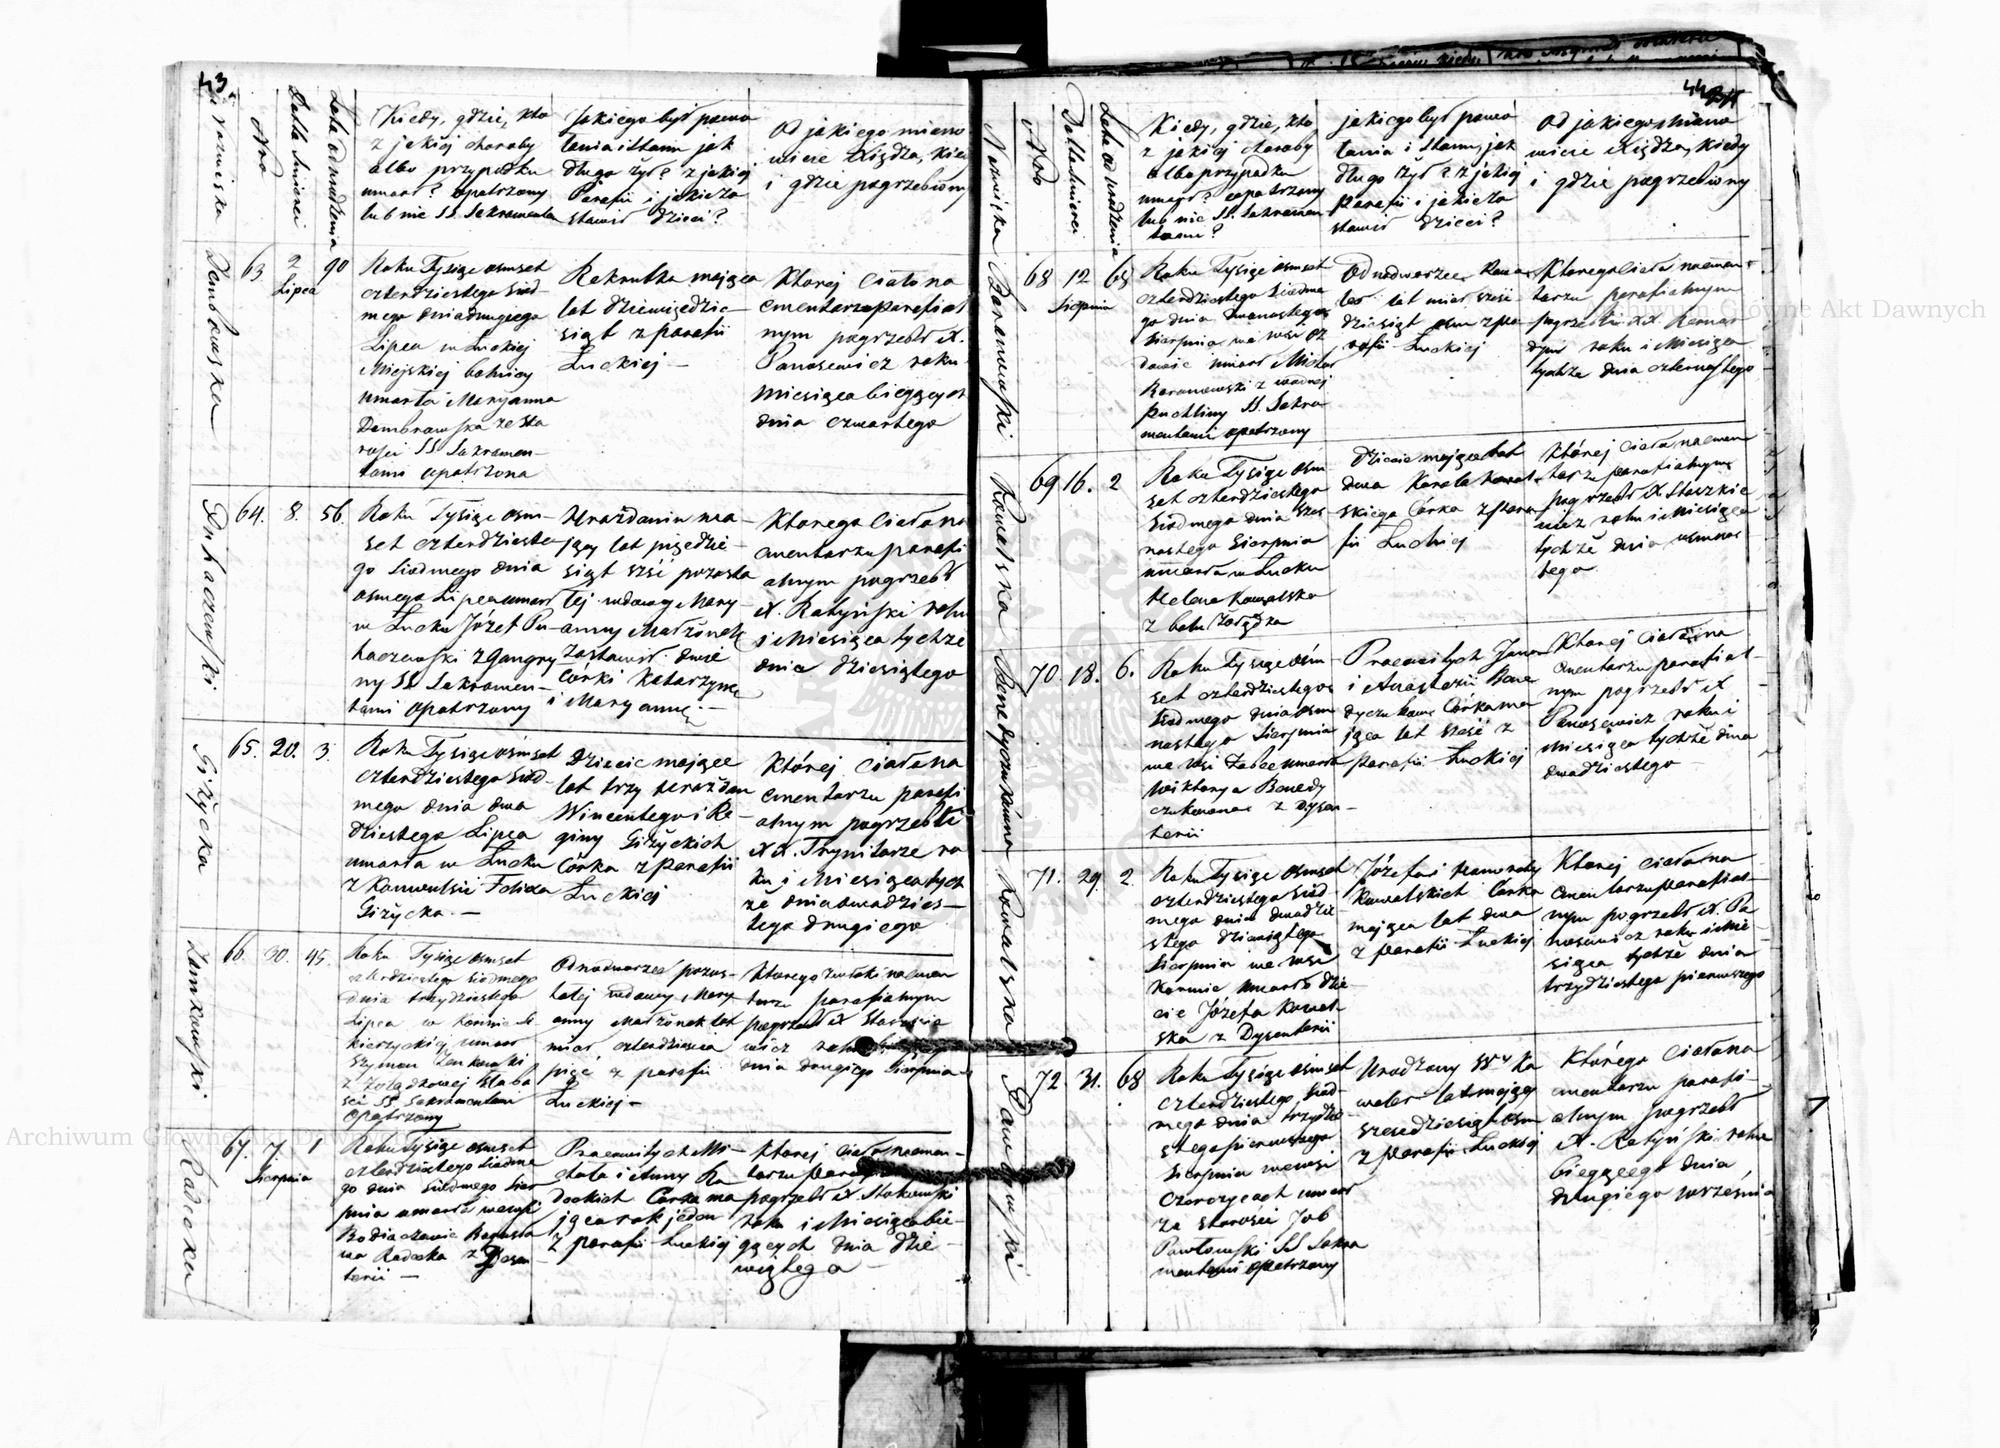 43.
Nazwiska
Nro
Datta śmierci
Lata od urodzenia
Kiedy, gdzie, kto
z jakiej choroby
albo przypadku
umarł? opatrzony
lub nie SS. Sakramenta
Jakiego był powo
łania i stanu jak
długo żył? z jakiej
Parafii i jakie zo
stawił dzieci?
Od jakiego miano
wicie Xiędza, kie
i gdzie pogrzebiony
Dombrowska
63
2
Lipca
90
Roku Tysiąc osmset
czterdziestego siod
mego dnia drugiego
Lipca w Łuckiej
Miejskiej bolnicy
umarła Maryanna
Dombrowska ze sta
rości SS Sakramen-
tami opatrzona
Rekrutka mająca
lat dziewiędzie-
siąt z parafii
Łuckiej —
Ktorej Ciało na
cmentarzu parafial
nym pogrzebł X.
Panasewicz roku
Miesiąca bieżących
dnia czwartego
Puhaczewski
64.
8.
56.
Roku Tysiąc osm-
set czterdzieste
go siodmego dnia
osmego Lipca umarł
w Łucku Józef Pu-
haczewski z Gangry
ny SS. Sakramen-
tami opatrzony
Mrażdanin ma-
jący lat pięędzie-
siąt sześć pozosta
łej wdowy Mary-
anny Małżonek
zostawił dwie
Córki Katarzynę
i Maryannę. —
Ktorego Ciało na
cmentarzu parafi
alnym pogrzebł
X. Ratyński roku
i Miesiąca tychże
dnia dziesiątego
Giżycka
65.
20.
3.
Roku Tysiąc osmset
czterdziestego siód-
mego dnia dwu
dziestego Lipca
umarła w Łucku
z Konwulsii Felicia
Giżycka. —
Dziecie mające
lat trzy
Wincentego i Re-
giny Giżyckich
Córka z parafii
Łuckiej
Której Ciało na
cmentarzu parafi
alnym pogrzebli
XX. Trynitarze ro
ku i Miesiąca tych
że dnia dwudzies-
tego drugiego
Zamkowski
66.
30.
45.
Roku Tysiąc osmset
czterdziestego siodmego
dnia trzydziestego
Lipca w
umarł
Szymon Zamkowski
z żołądkowej słabo
ści SS Sakramentami
opatrzony
Odnodworzec pozos-
tałej wdowy Mary
anny Małżonek lat
miał czterdzieście
pięć z parafii
Łuckiej —
Ktorego zwłoki na cmen
tarzu parafialnym
pogrzebł X
dnia drugiego Sierpnia
Radecka
67.
7.
Sierpnia
1
Roku Tysiąc osmset
czterdziestego siodme
go dnia siodmego Sier
pnia umarła we wsi
na Radecka z Dysen
terii —
Pracowitych Mi-
chała i Anny Ra
deckich Córka ma
jąca rok jeden
z parafii Łuckiej
Ktorej ciało na cmen-
tarzu
pogrzebł X
roku i Miesiąca bie-
żących dnia dzie-
wiątego —
44
Nazwiska
Nro
Datta śmierci
Lata od urodzenia
Kiedy, gdzie, kto
z jakiej choroby
albo przypadku
umarł? opatrzony
lub nie SS. Sakramen
tami?
Jakiego był powo
łania i stanu, jak
długo żył? z jakiej
Parafii i jakie zo
stawił dzieci?
Od jakiego miano
wicie Xiędza, kiedy
i gdzie pogrzebiony
Baranowski
68
12
Sierpnia
68
Roku Tysiąc osmset
czterdziestego siodme
go dnia dwunastego
Sierpnia we wsi
umarł Michał
Baranowski z wodnej
puchliny SS. Sakra
mentami opatrzony
Odnodworzec
lat miał sześć-
dziesiąt osm z pa
rafii Łuckiej
Ktorego ciało na cmen-
tarzu parafialnym
pogrzebli XX. Bernar
dyni roku i Miesiąca
tychże dnia czternastego
Kowalska
69
16.
2
Roku Tysiąc osm-
set czterdziestego
siodmego dnia szes
nastego Sierpnia
umarła w Łucku
Helena Kowalska
z bolu żołądka
Dziecie mające lat
dwa Karola Kowal-
skiego Córka z para
fii Łuckiej
Której Ciało na cmen
tarzu parafialnym
pogrzebł X. Staszkie
wicz roku i Miesiąca
tychże dnia osmnas
tego
Benedyczukówna
70
18.
6.
Roku Tysiąc osm-
set czterdziestego
siodmego dnia osm
nastego Sierpnia
we wsi umarła
Wiktorya Benedy
czukowna z Dysen-
terii
Pracowitych Jana
i Anastazii Bene
dyczukow Córka ma
jąca lat sześć z
parafii Łuckiej
Ktorej Ciało na
cmentarzu parafial-
nym pogrzebł X
Panasewicz roku i
Miesiąca tychże dnia
dwudziestego
Kowalska
71.
29.
2.
Roku Tysiąc osmset
czterdziestego siód-
mego dnia dwudzie
stego dziewiątego
Sierpnia we wsi
umarło dzie-
cie Józefa Kowal-
ska z Dysenterii
Józefa i
Kowalskich Córka
mająca lat dwa
z parafii Łuckiej
Ktorej Ciało na
cmentarzu parafial-
nym pogrzebł X. Pa
nasewicz roku i Mie-
siąca tychże dnia
trzydziestego pierwszego
Pawłowski
72.
31.
68
Roku Tysiąc osmset
czterdziestego siód-
mego dnia trzydzie
stego pierwszego
Sierpnia we wsi
Czerczycach umarł
ze starości Job
Pawłowski SS Sakra
mentami opatrzony
Urodzony Ka
waler lat mający
szesedziesiąt osm
z parafii Łuckiej
Którego Ciało na
cmentarzu parafi-
alnym pogrzebł
X. Ratyński roku
bieżącego dnia
drugiego września
Archiwum Główne Akt Dawnych
Archiwum Główne Akt Dawnych